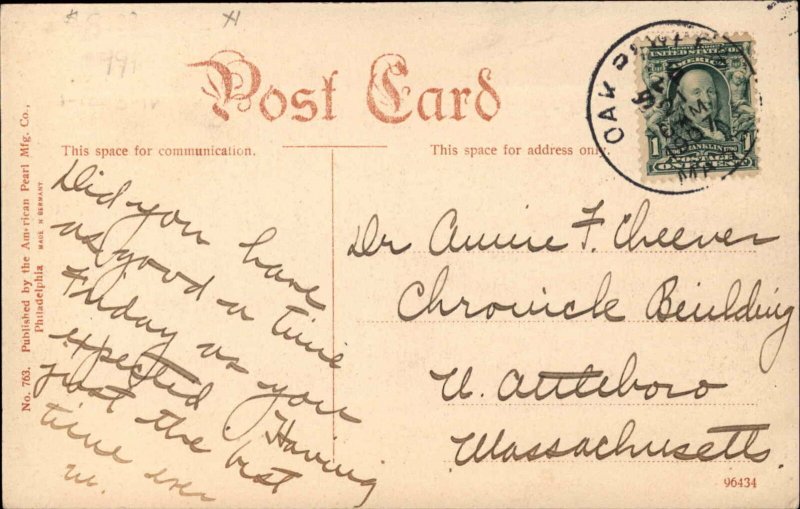 Post Card
This space for communication.
This space for address only.
No. 763. Published by the American Pearl Mfg. Co.,
Philadelphia MADE IN GERMANY
Did you have
as good a time
Friday as you
expected. Having
just the best
time ever
M.
OAK
SERIES 1902
UNITED STATES OF
AMERICA
1 FRANKLIN 1790 1
POSTAGE
ONE CENT
Dr Annie F. Cheever
Chronicle Building
N. Attleboro
Massachusetts.
96434